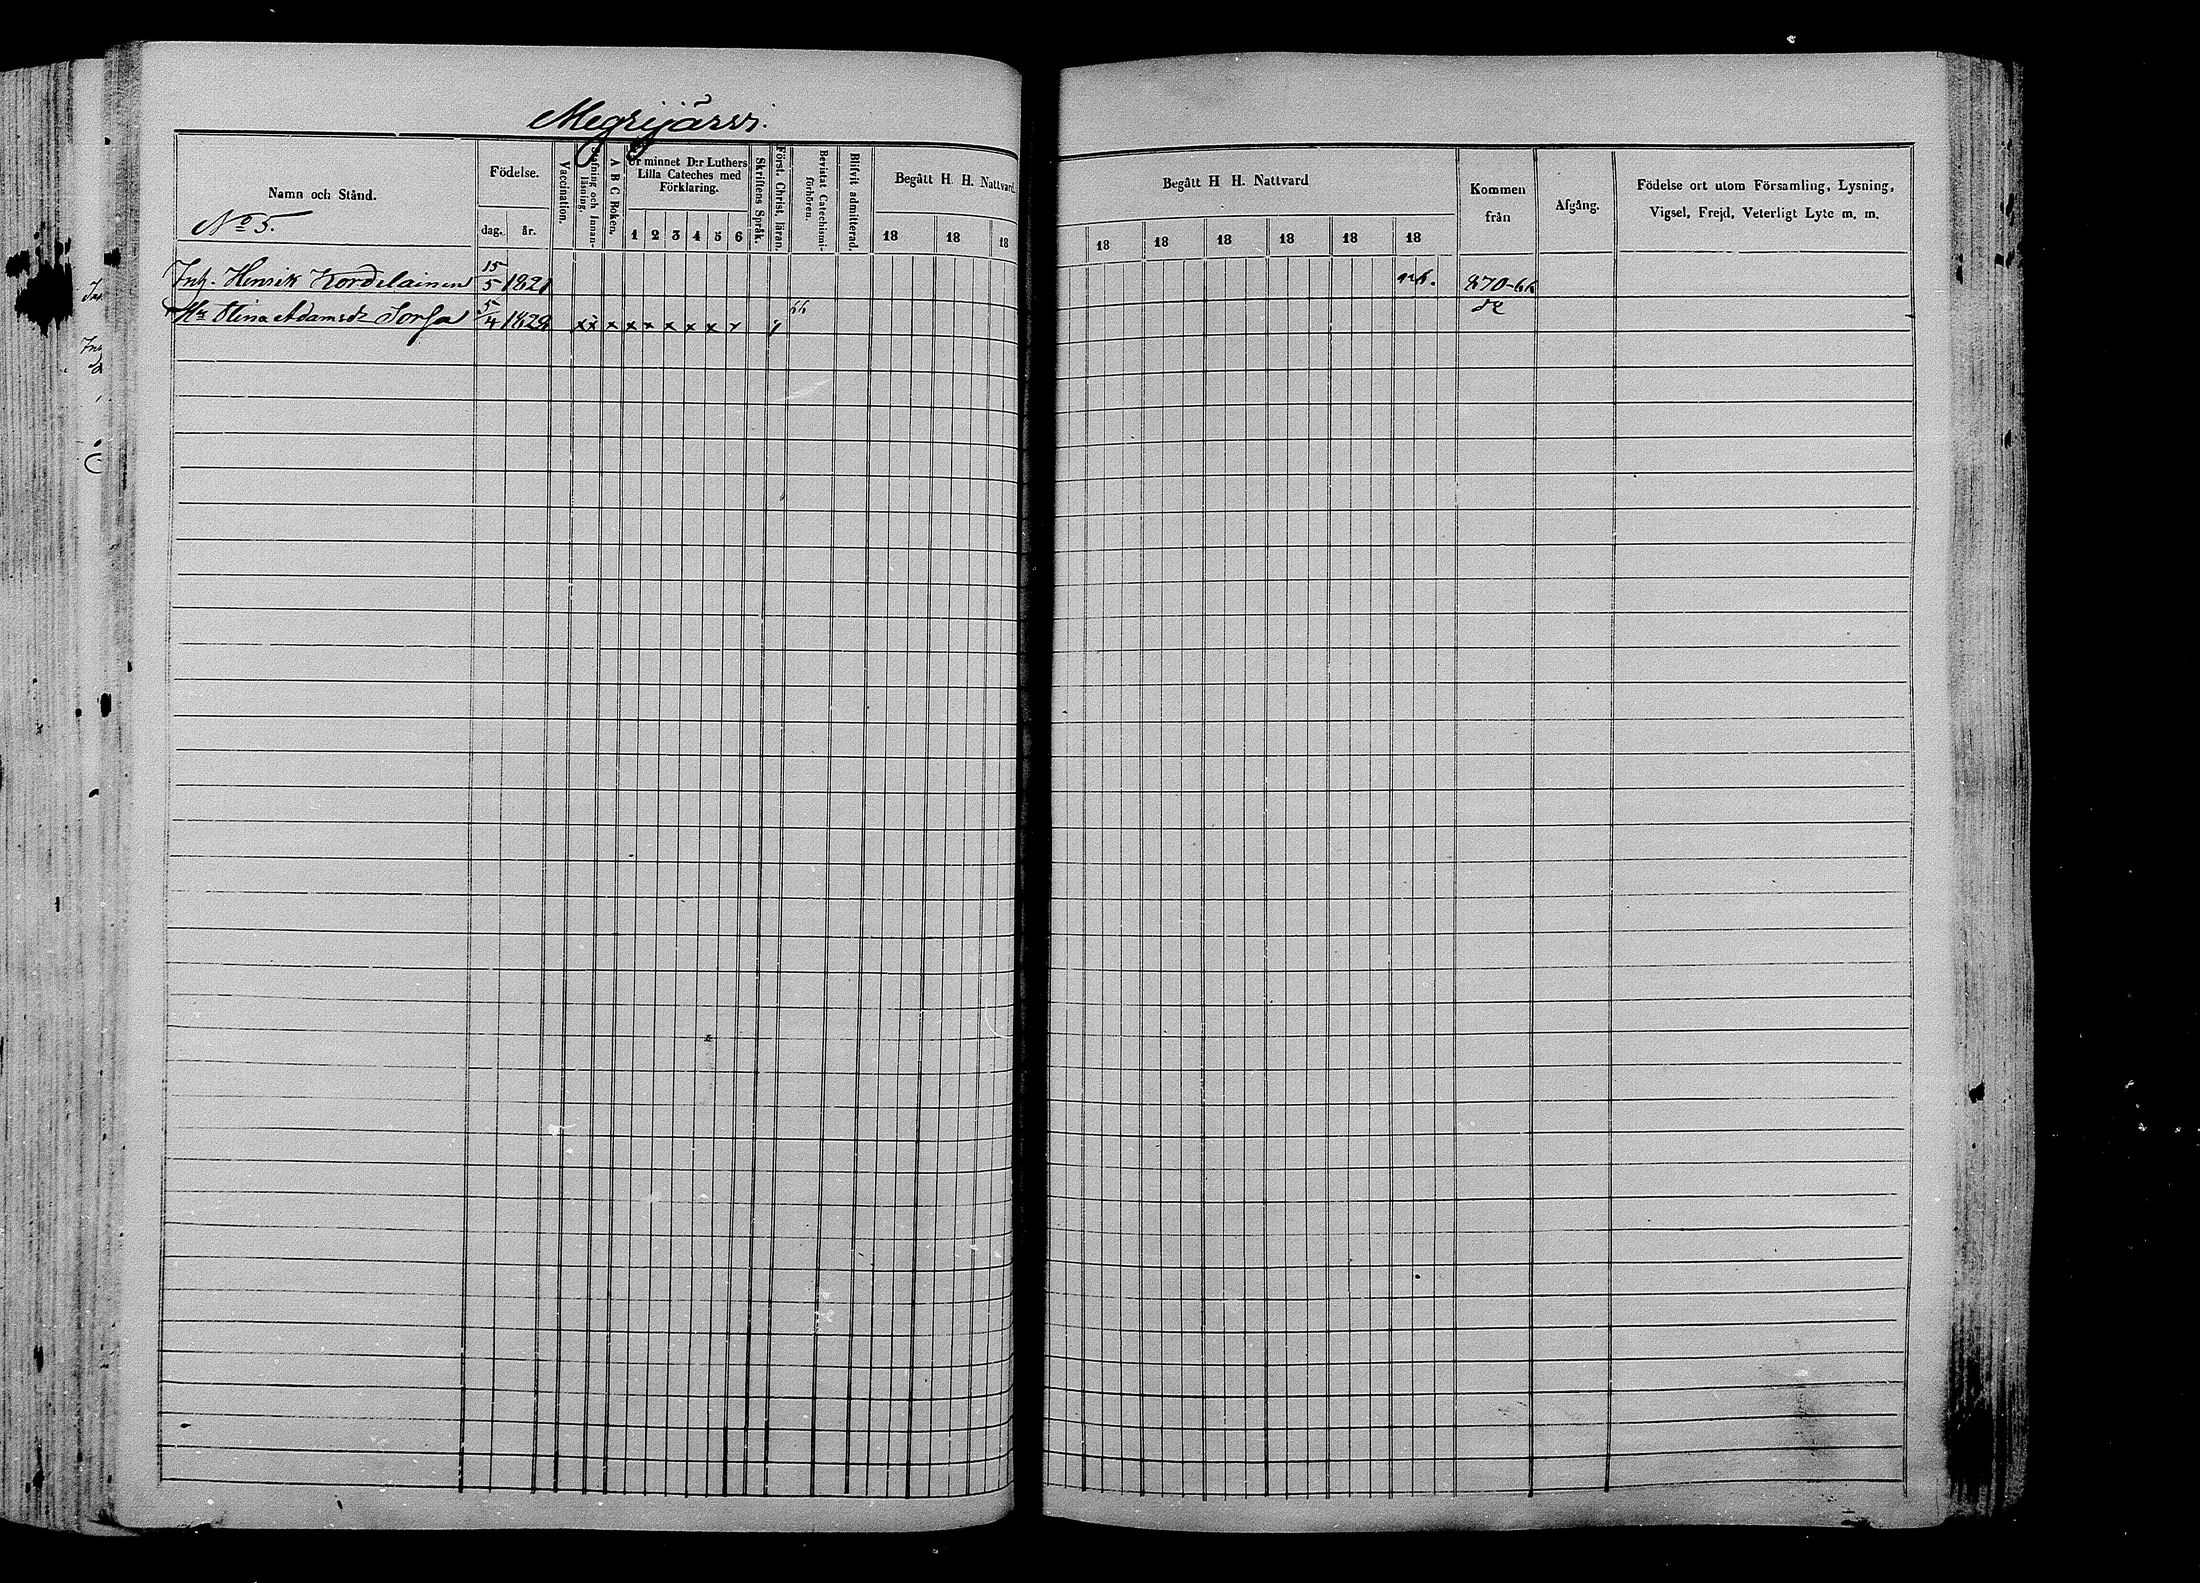 Megrijärvi.
Namn och Stånd.
No 5.
Födelse.
dag. år.
Vaccination.
Stafning och Innanläsning.
A B C Boken.
Ur minnet D:r Luthers Lilla Cateches med Förklaring.
1 2 3 4 5 6
Skriftens Språk.
Först. Christ, läran.
Bevistat Catechismiförhören.
Blifvit admitterad.
Begått H. H. Nattvard.
18 18 18
Begått H. H. Nattvard
18 18 18 18 18 18
Kommen från
Afgång.
Födelse ort utom Församling, Lysning,
Vigsel, Frejd, Veterligt Lyte m. m.
Inh. Henrik Kordelainen 15/5 1821 870-66
Hu Stina Adamsdr Sorsa 5/4 1829 x x x x x x x x x 66